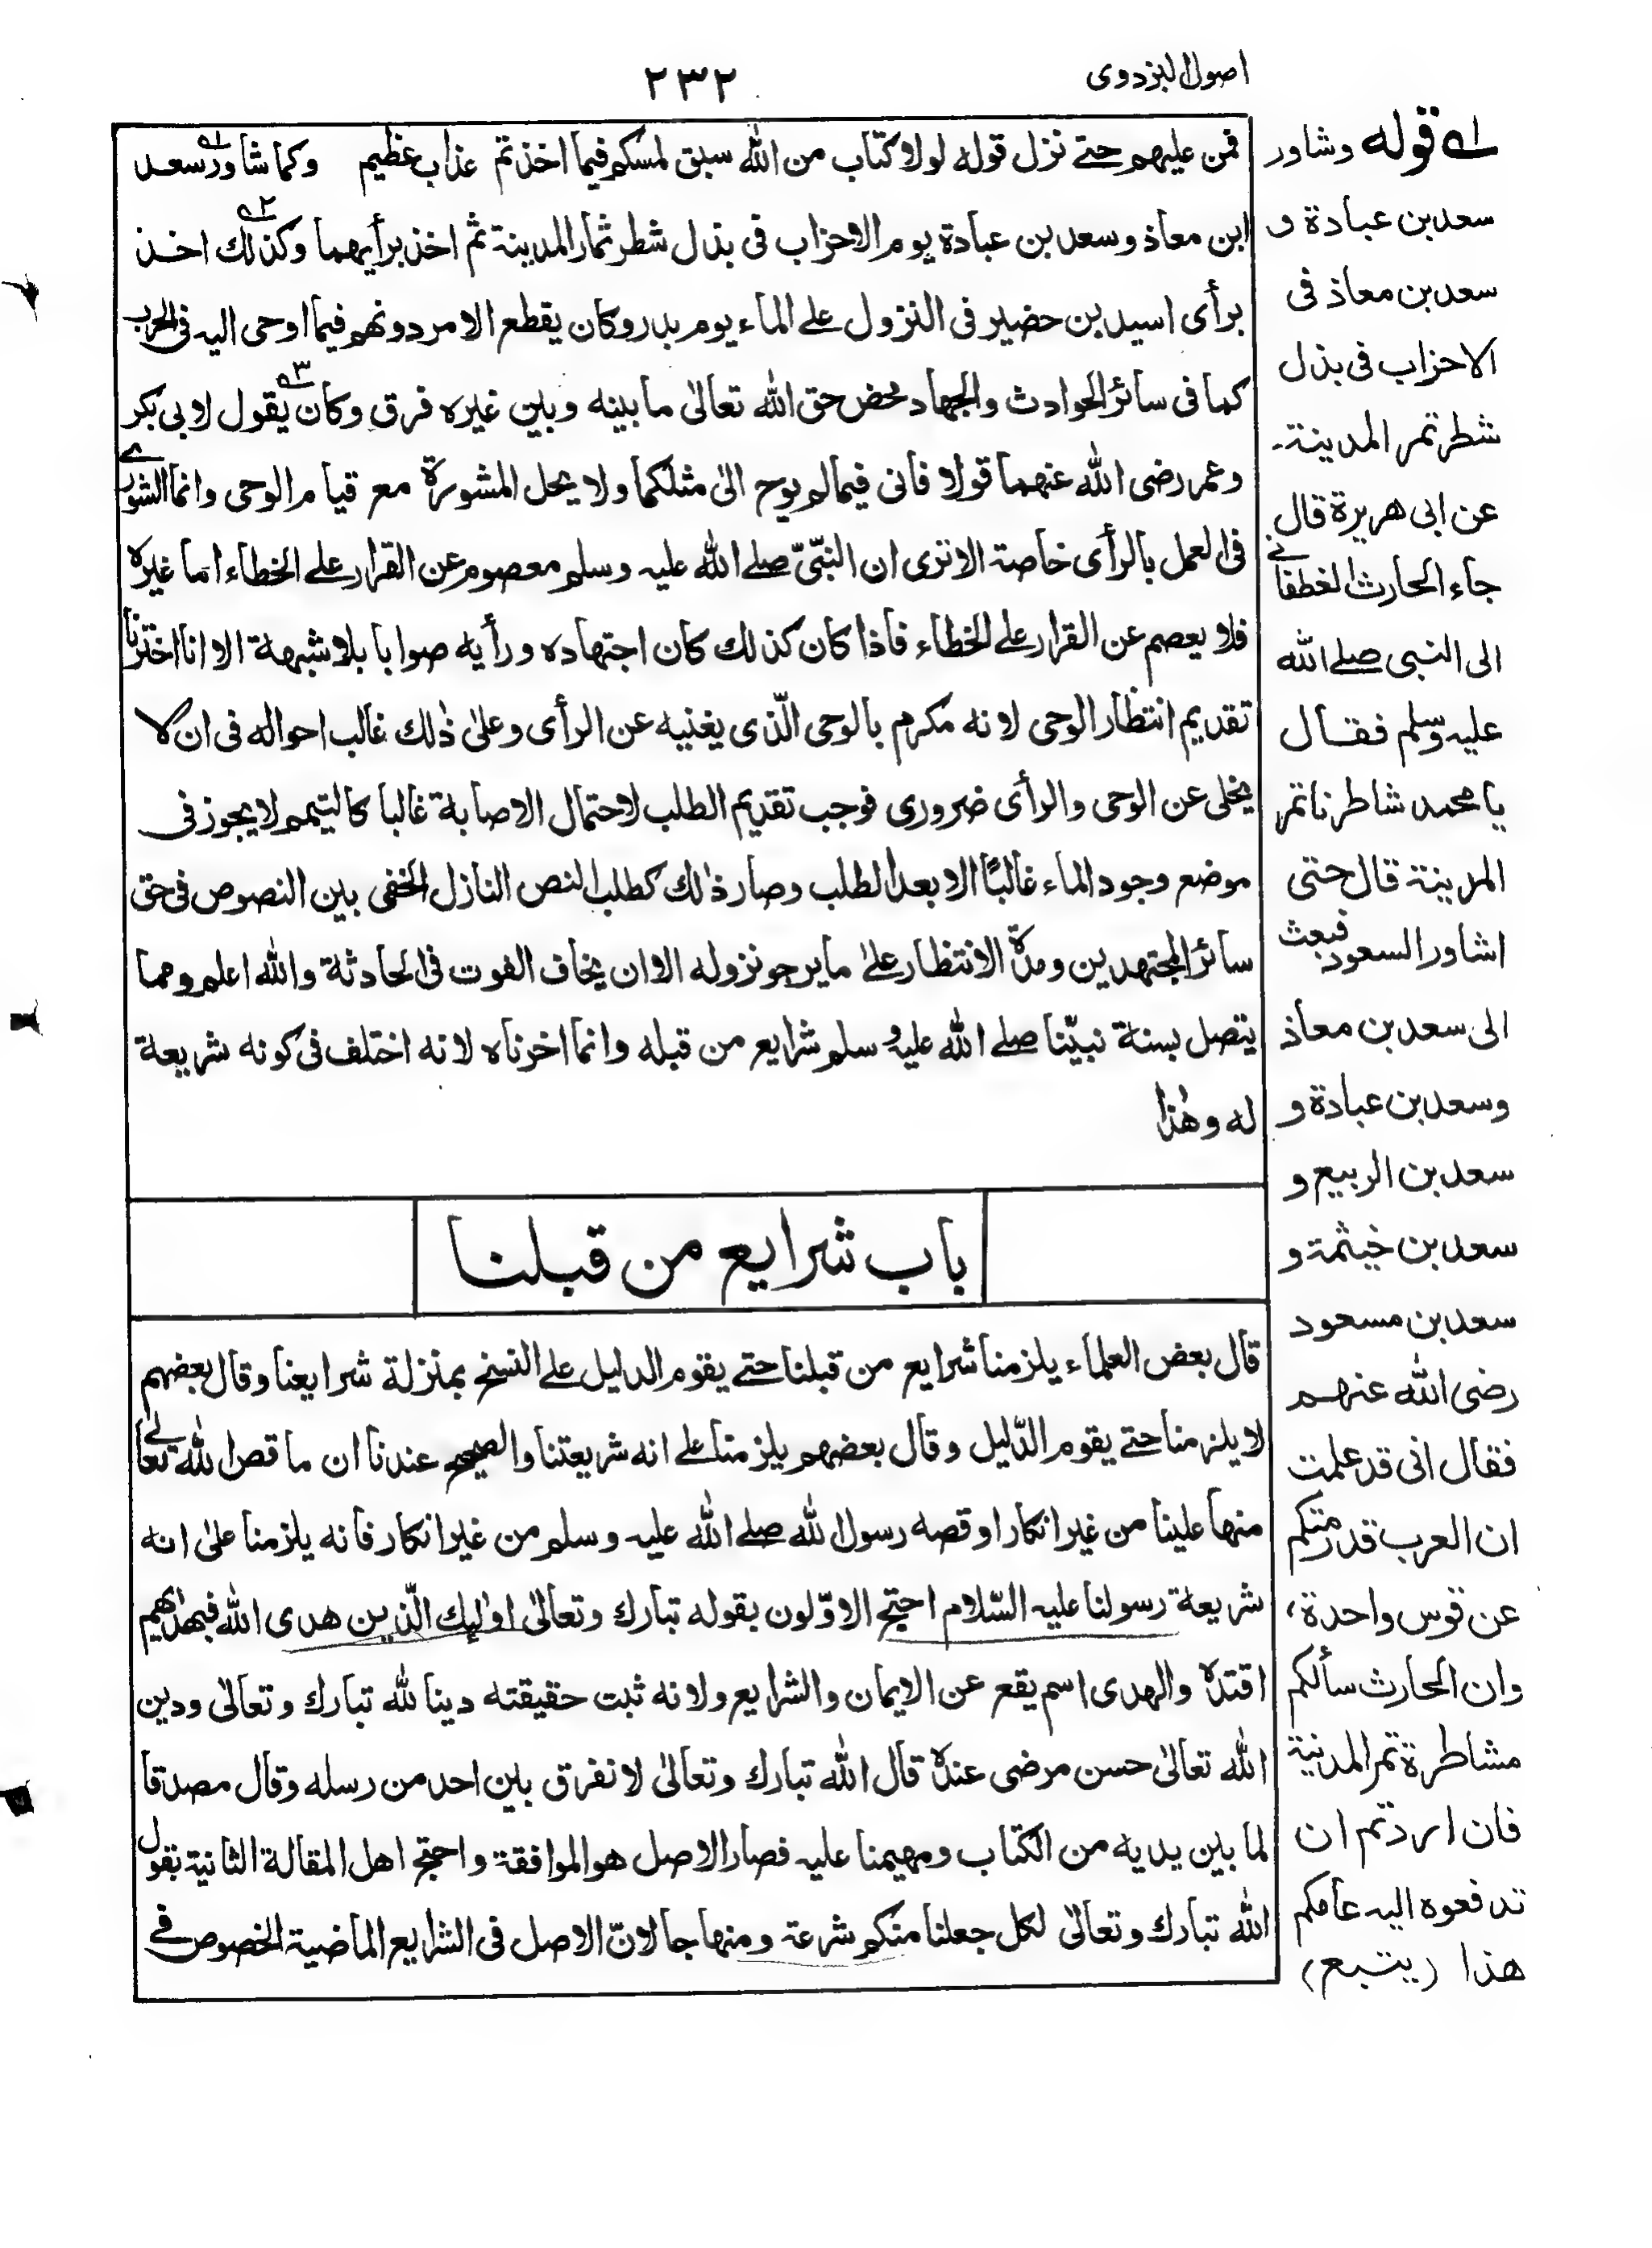 اصول البزدوى
٢٣٢
فمن عليهم حتے نزل قوله لولا كتاب من الله سبق لمسكم فيما اخذتم عذاب عظيم وكما شاور سعد
ابن معاذ وسعد بن عبادة يوم الاحزاب فى بذل شطر ثمار المدينة ثم اخذ برأيهما وكذلك اخذ
برأى اسيد بن حضير فى النزول علے الماء يوم بدر وكان يقطع الامر دونهم فيما اوحى اليه فى الحرب
كما فى سائر الحوادث والجهاد محض حق الله تعالىٰ ما بينه وبين غيره فرق وكان يقول لابى بكر
وعمر رضى الله عنهما قولا فانى فيما لم يوح الىٰ مثلكما ولا يحل المشورة مع قيام الوحى وانما الشورے
فى العمل بالرأى خاصة الا ترى ان النبىّ صلے الله عليه وسلم معصوم عن القرار علے الخطاء اما غيره
فلا يعصم عن القرار علے الخطاء فاذا كان كذلك كان اجتهاده ورأيه صوابا بلا شبهة الا انا اخترنا
تقديم انتظار الوحى لانه مكرم بالوحى الّذى يغنيه عن الرأى وعلىٰ ذٰلك غالب احواله فى ان لا
يخلى عن الوحى والرأى ضرورى فوجب تقديم الطلب لاحتمال الاصابة غالبا كالتيمم لا يجوز فى
موضع وجود الماء غالبًا الا بعد الطلب وصار ذٰلك كطلب النص النازل الخفى بين النصوص فى حق
سائر المجتهدين ومدّة الانتظار علىٰ ما يرجو نزوله الا ان يخاف الفوت فى الحادثة والله اعلم ومما
يتصل بسنة نبيّنا صلے الله عليه وسلم شرايع من قبله وانما اخرناه لانه اختلف فى كونه شريعة
له وهٰذا
باب شرايع من قبلنا
قال بعض العلماء يلزمنا شرايع من قبلنا حتے يقوم الدليل علے النسخ بمنزلة شرايعنا وقال بعضهم
لا يلزمنا حتے يقوم الدّليل وقال بعضهم يلزمنا علے انه شريعتنا والصحيح عندنا ان ما قص الله تعالے
منها علينا من غير انكار او قصه رسول الله صلے الله عليه وسلم من غير انكار فانه يلزمنا علىٰ انه
شريعة رسولنا عليه السّلام احتج الاوّلون بقوله تبارك وتعالىٰ اولٰيك الّذين هدى الله فبهدٰىهم
اقتدہ والهدى اسم يقع عن الايمان والشرايع ولانه ثبت حقيقته دينا لله تبارك وتعالىٰ ودين
الله تعالىٰ حسن مرضى عنده قال الله تبارك وتعالىٰ لا نفرق بين احد من رسله وقال مصدقا
لما بين يديه من الكتاب ومهيمنا عليه فصار الاصل هو الموافقة واحتج اهل المقالة الثانية بقول
الله تبارك وتعالىٰ لكل جعلنا منكم شرعة ومنهاجا لانّ الاصل فى الشرايع الماضية الخصوص فے
١ے قوله وشاور
سعد بن عبادة و
سعد بن معاذ فى
الاحزاب فى بذل
شطر تمر المدينة۔
عن ابى هريرة قال
جاء الحارث الغطفانے
الى النبى صلے الله
عليه وسلم فقال
يا محمد شاطرنا تمر
المدينة قال حتى
اشاور السعود فبعث
الى سعد بن معاذ
وسعد بن عبادة و
سعد بن الربيع و
سعد بن خيثمة و
سعد بن مسعود
رضى الله عنهم
فقال انى قد علمت
ان العرب قد رمتكم
عن قوس واحدة،
وان الحارث سألكم
مشاطرة تمر المدينة
فان اردتم ان
تدفعوه اليه عامكم
هذا (يتبع)